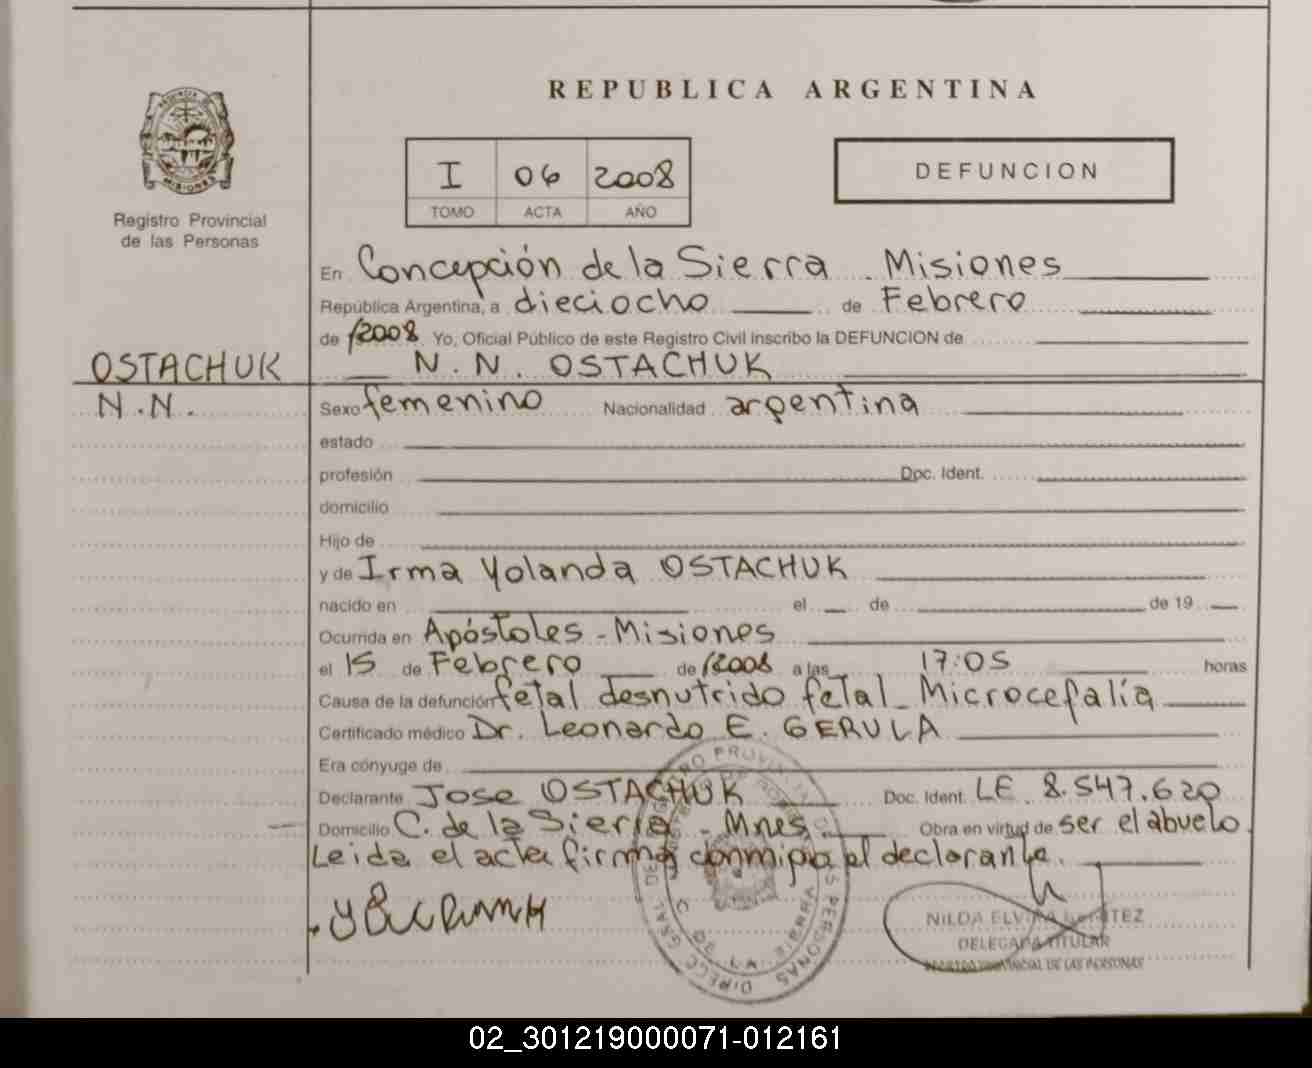 REPUBLICA ARGENTINA
I 06 2008
TOMO ACTA AÑO
DEFUNCION
Registro Provincial
de las Personas
En Concepción de la Sierra - Misiones
República Argentina, a dieciocho de Febrero
de 2008 Yo, Oficial Público de este Registro Civil inscribo la DEFUNCION de
OSTACHUK
N. N. OSTACHUK
N.N.
Sexo femenino Nacionalidad argentina
estado
profesión Doc. Ident.
domicilio
Hijo de
y de Irma Yolanda OSTACHUK
nacido en el de de 19
Ocurrida en Apóstoles - Misiones
el 15 de Febrero de 2008 a las 17:05 horas
Causa de la defunción fetal desnutrido fetal - Microcefalía
Certificado médico Dr. Leonardo E. GERULA
Era cónyuge de
Declarante Jose OSTACHUK Doc. Ident. LE 8.547.620
Domicilio C. de la Sierra - Mnes. Obra en virtud de ser el abuelo.
Leida el acta firma conmigo el declarante.
NILDA ELVIRA
DELEGADA TITULAR
REGISTRO PROVINCIAL DE LAS PERSONAS
02_301219000071-012161